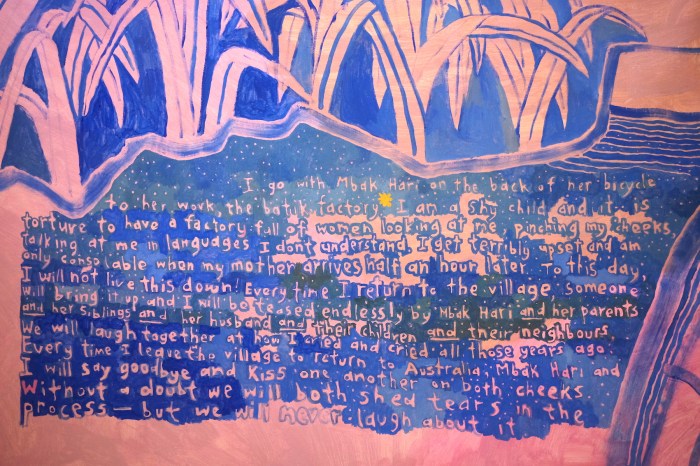 I go with Mbak Hari on the back of her bicycle
to her work, the batik factory. I am a shy child and it is
torture to have a factory full of women looking at me, pinching my cheeks,
talking at me in languages I dont understand. I get terribly upset and am
only consolable when my mother arrives half an hour later. To this day,
I will not live this down! Every time I return to the village, someone
will bring it up and I will be teased endlessly by Mbak Hari and her parents
and her siblings and her husband and their children and their neighbours.
We will laugh together at how I cried and cried all those years ago.
Every time I leave the village to return to Australia, Mbak Hari and
I will say goodbye and kiss one another on both cheeks.
Without a doubt we will both shed tears in the
process — but we will never laugh about it.